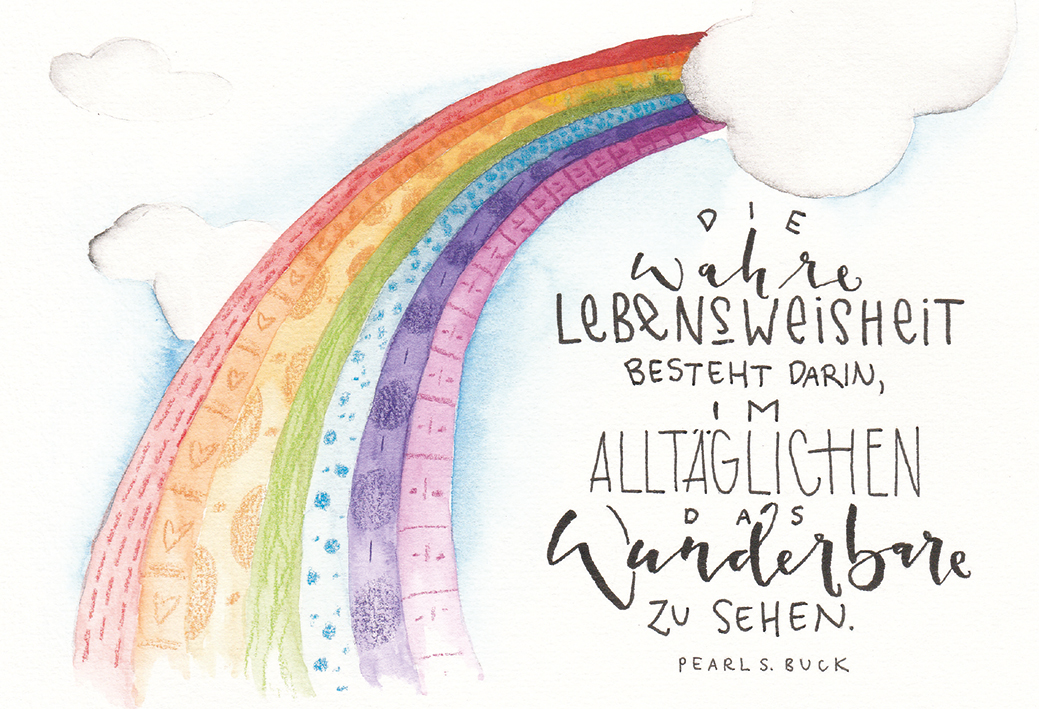 DIE
wahre
LEBENSWEISHEIT
BESTEHT DARIN,
IM
ALLTÄGLICHEN
DAS
Wunderbare
ZU SEHEN.
PEARL S. BUCK